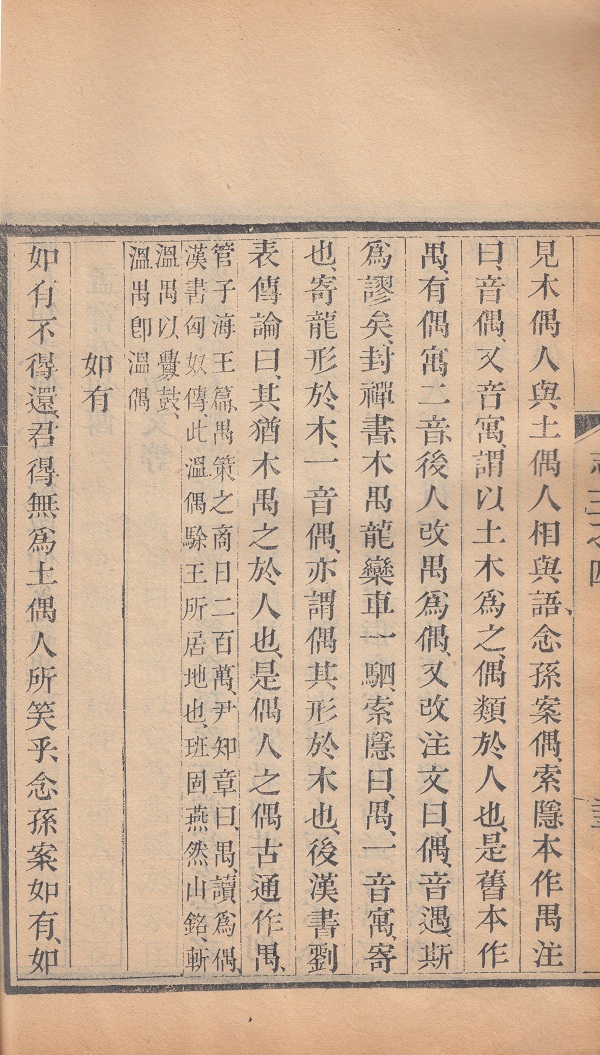 見木偶人與土偶人相與語、念孫案偶、索隱本作禺、注
曰、音偶、又音寓、謂以土木爲之、偶類於人也、是舊本作
禺、有偶寓二音、後人改禺爲偶、又改注文曰、偶、音遇、斯
爲謬矣、封禪書、木禺龍欒車一駟、索隱曰、禺、一音寓、寄
也、寄龍形於木、一音偶、亦謂偶其形於木也、後漢書劉
表傳論曰、其猶木禺之於人也、是偶人之偶古通作禺、
管子海王篇、禺筴之商日二百萬、尹知章曰、禺、讀爲偶、
漢書匈奴傳、此溫偶駼王所居地也、班固燕然山銘、斬
溫禺以釁鼓、
溫禺卽溫偶
如有
如有不得還、君得無爲土偶人所笑乎、念孫案如有、如